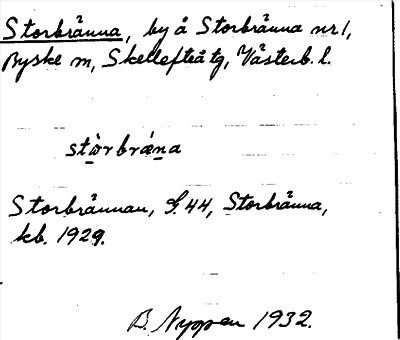 Storbränna, by å Storbränna nr 1,
Byske sn, Skellefteå tg, Västerb. l.
stòrbrǽna
Storbrännan, G. 44, Storbränna,
kb. 1929.
B. Nyman 1932.